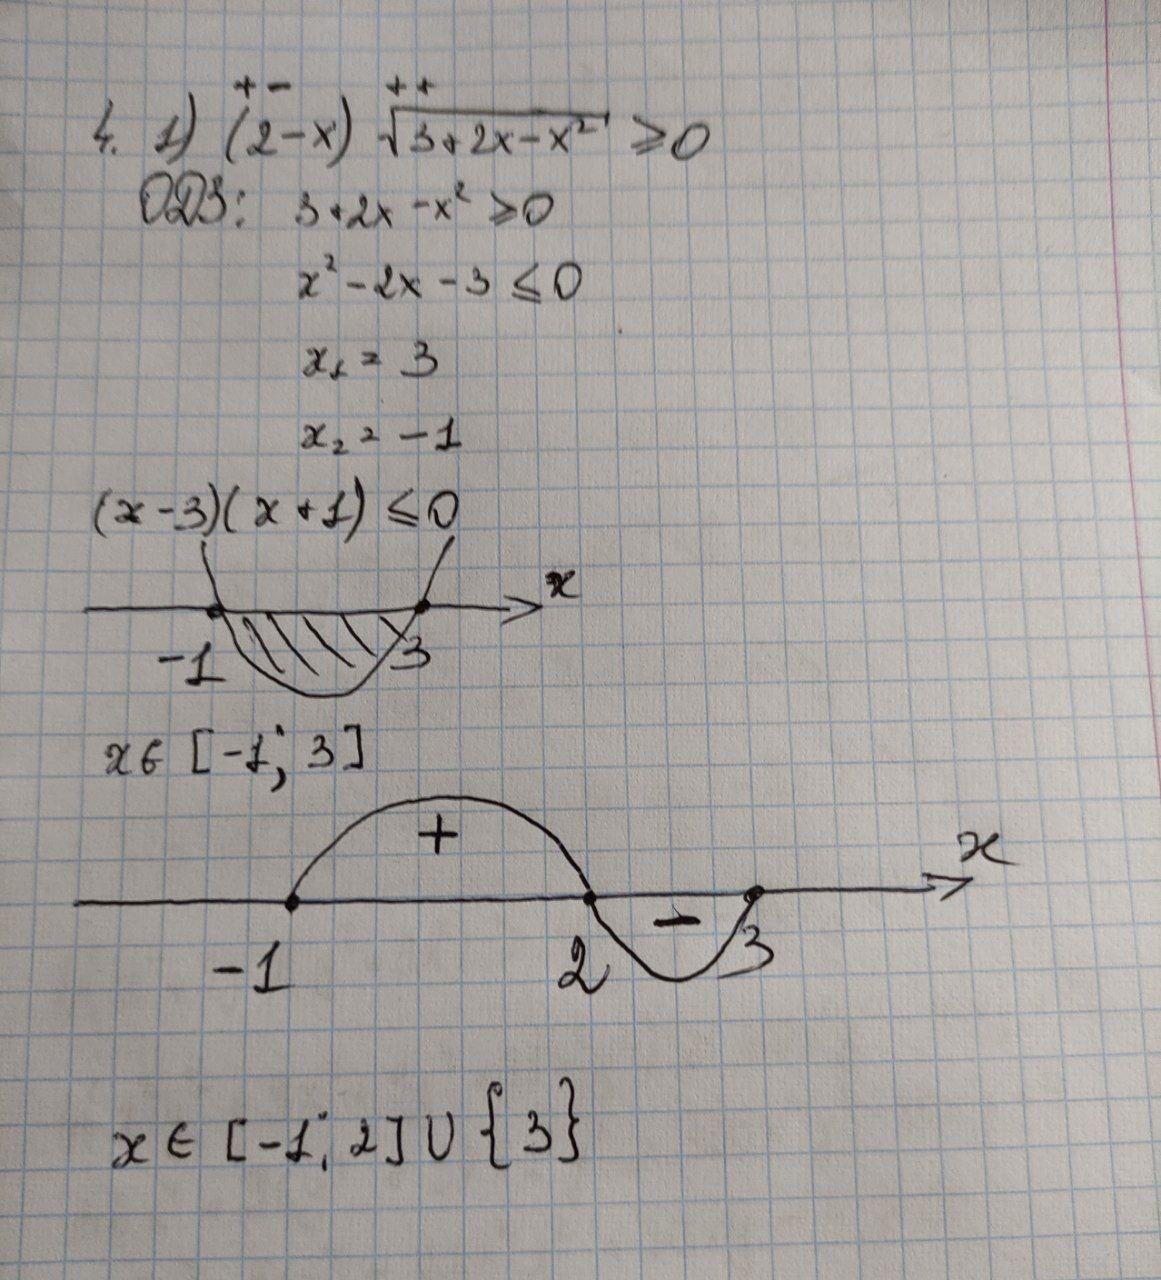 + - + +
4. 1) (2-x) √3+2x-x² ≥0
ОДЗ: 3+2x-x² ≥0
x²-2x-3 ≤0
x₁ = 3
x₂ = -1
(x-3)(x+1) ≤0
x
-1 3
x∈ [-1; 3]
+ x
-
-1 2 3
x ∈ [-1; 2] U {3}